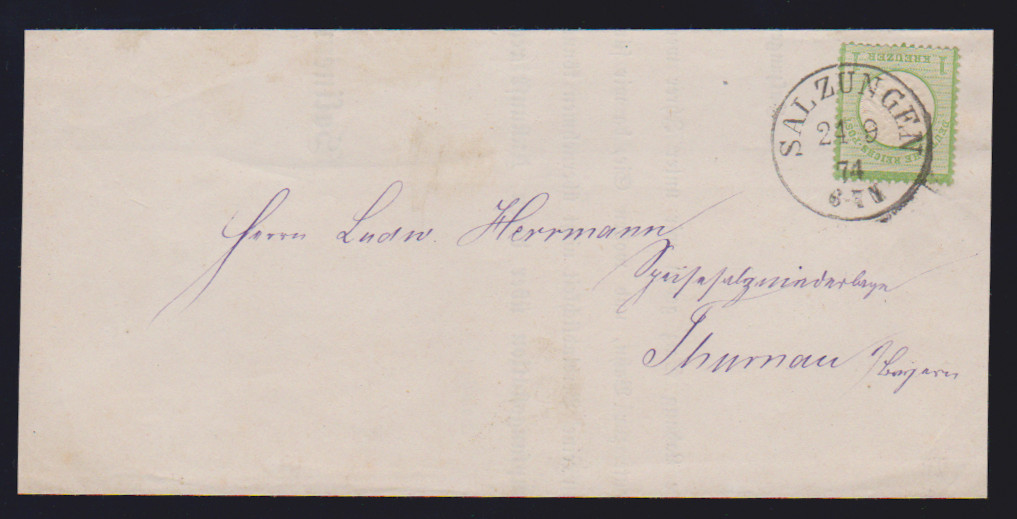 1 KREUZER 1
DEUTSCHE REICHS-POST
SALZUNGEN
21 9
74
6-7 N
Herrn Ludw. Herrmann
Speisesalzniederlage
Thurnau /Bayern